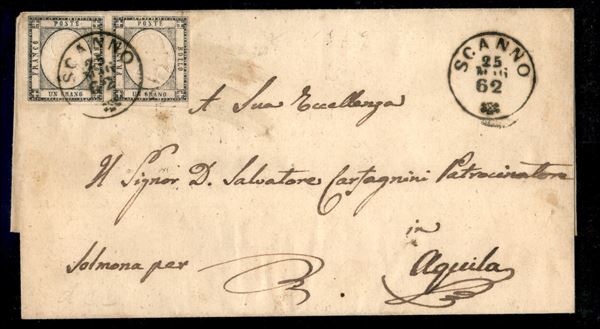 POSTE POSTE
FRANCO BOLLO
UN GRANO UN GRANO
SCANNO
25
MAG
62
SCANNO
25
MAG
62
A Sua Eccellenza
Il Signor D. Salvatore Cartagnini Patrocinatore
in
Solmona per Aquila